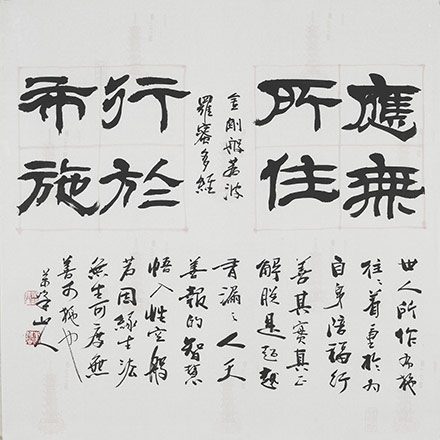 應無
所住
金剛般若波
羅蜜多經
行於
布施
世人所作布施
往々着重於為
自身培福行
善其實真正
解脫是超越
有漏之人天
善報的智慧
悟入性空般
若因緣生法
無生可度無
善可施也
山人